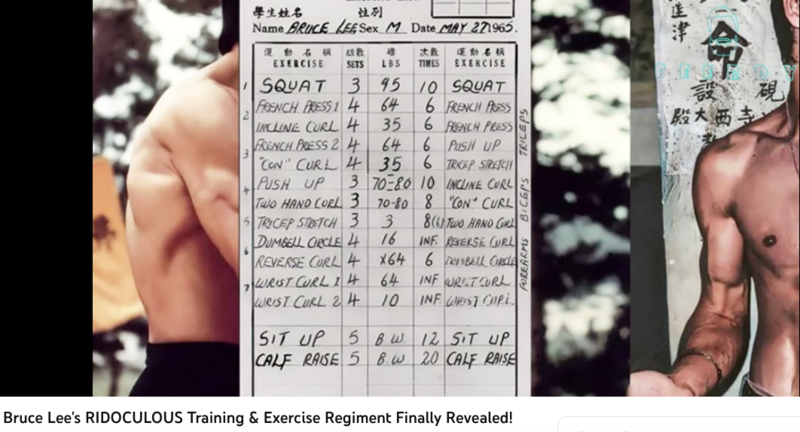 學生姓名 性別
Name BRUCE LEE Sex M Date MAY 27 1965.
運動名稱 組數 磅 次數 運動名稱
EXERCISE SETS LBS TIMES EXERCISE
1 SQUAT 3 95 10 SQUAT
2 FRENCH PRESS 1 4 64 6 FRENCH PRESS
INCLINE CURL 4 35 6 FRENCH PRESS
3 FRENCH PRESS 2 4 64 6 PUSH UP
"CON" CURL 4 35 6 TRICEP STRETCH
4 PUSH UP 3 70-80 10 INCLINE CURL
TWO HAND CURL 3 70-80 8 "CON" CURL
5 TRICEP STRETCH 3 3 TWO HAND CURL
6 DUMBELL CIRCLE 4 16 INF. REVERSE CURL
REVERSE CURL 4 X64 6 DUMBELL CIRCLE
7 WRIST CURL 1 4 64 INF WRIST CURL
WRIST CURL 2 4 10 INF WRIST CURL
SIT UP 5 B.W 12 SIT UP
CALF RAISE 5 B.W 20 CALF RAISE
TRICEPS
BICEPS
FOREARMS
津
命
設 硯
殿大西寺
Bruce Lee's RIDOCULOUS Training & Exercise Regiment Finally Revealed!